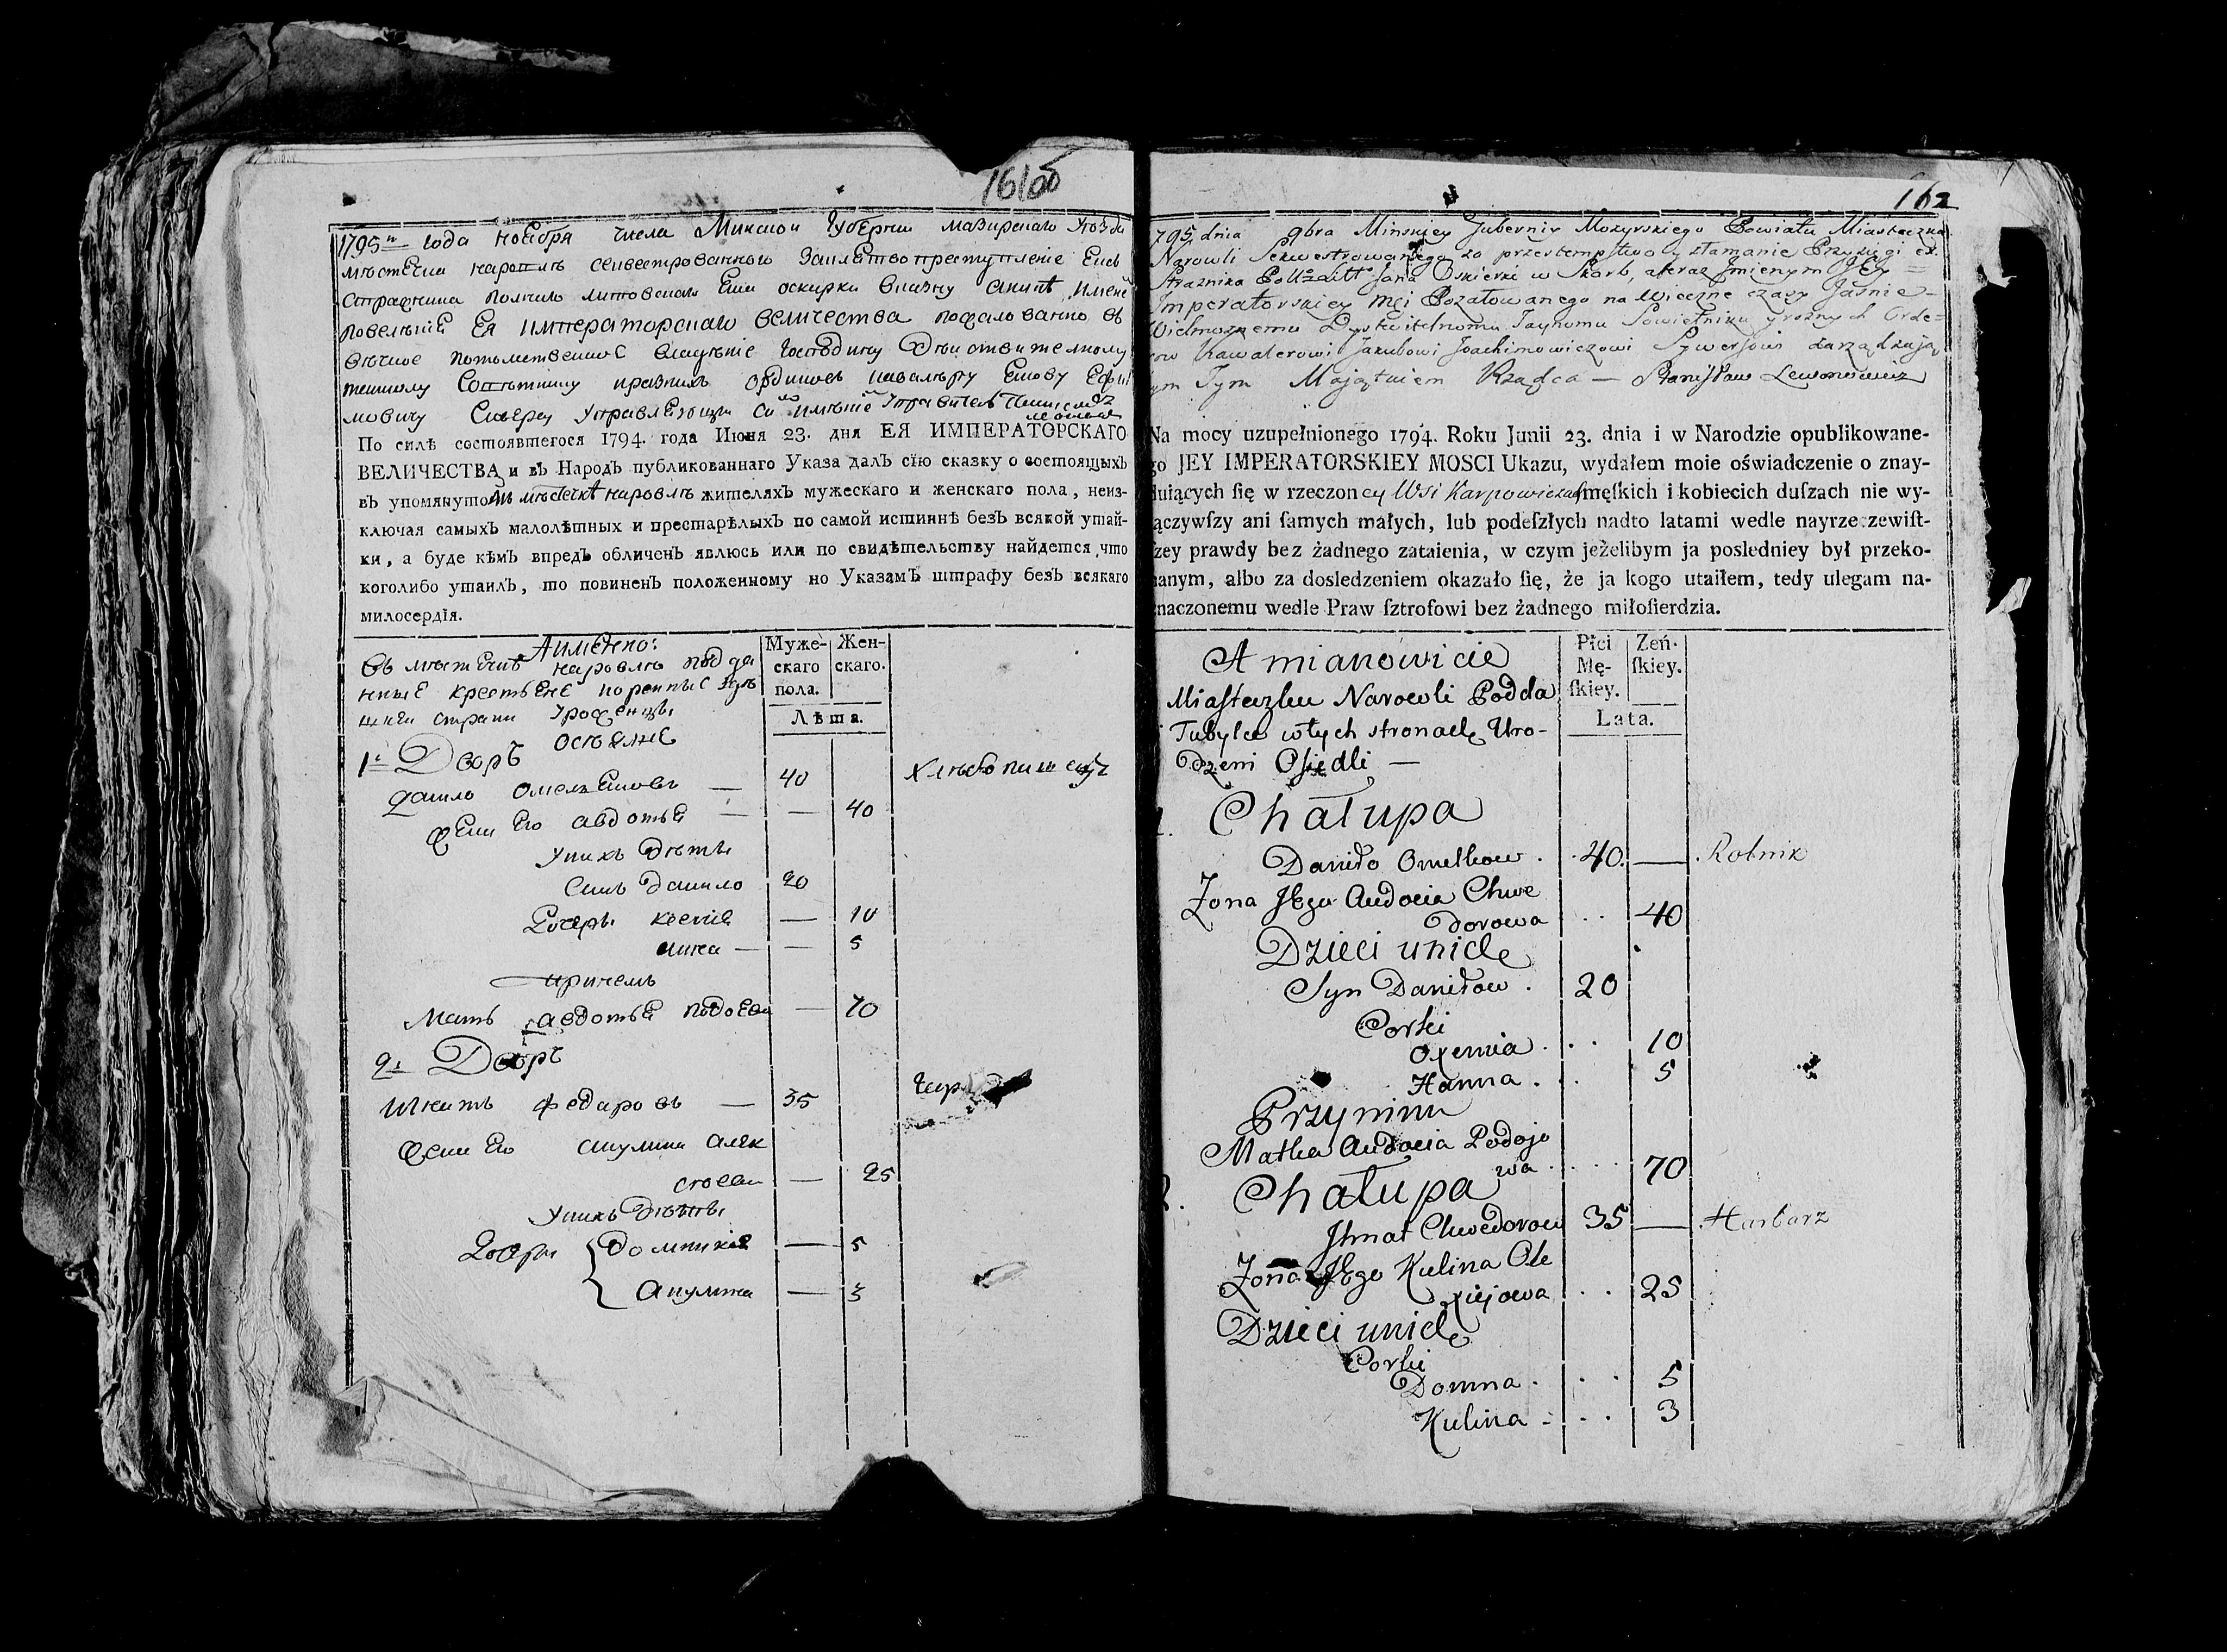 161об
1795го года ноебря числа Минской Губернии мозирскаго Уезда
местечка наровлѣ секвестрованнаго за клятвопреступление Ексъ
стражника полнаго литовскаго Ена оскирки в казну а ныне Имене
повелѣние Ея императорскаго величества пожалованно въ
вѣчное потомственное владѣние господину Действительному
тайному Советнику кавалеру Екову Ефи
мовичу Сиверсу Управляющи Симъ имѣниемъ Управитель Станислав
По силѣ состоявшегося 1794. года Июня 23. дня ЕЯ ИМПЕРАТОРСКАГО
ВЕЛИЧЕСТВА и въ Народъ публикованнаго Указа далъ сїю сказку о состоящыхъ
въ упомянутомъ местечке наровлѣ жителяхъ мужескаго и женскаго пола, неиз-
ключая самыхъ малолѣтныхъ и престарѣлыхъ по самой истиннѣ безъ всякой утай-
ки, а буде кѣмъ впредъ обличенъ явлюсь или по свидѣтельству найдется, что
коголибо утаилъ, то повиненъ положенному по Указамъ штрафу безъ всякаго
милосердїя.
Аимѣнно:
Въ местечкѣ наровлѣ подда
нные крестьене коренные здѣ
шней страни Уроженцы
оселые
Муже-
скаго
пола.
Жен-
скаго.
Лѣта.
1й Дворъ
данило омелковъ — 40 хлебопашецъ
Жена Его авдотья — — 40
У нихъ дѣти
Синъ данило 20
Дочери ксения — 10
анна — — 5
при немъ
Мать авдотья подоева — 70
2й Дворъ
Игнатъ федаровъ — 35
Жена Его акулина алек
сеева — 25
У нихъ дѣти
Дочери домникия — 5
Акулина — 3
162
795 dnia 9bra Minskiey Gubernii Mozyrskiego Powiatu Miasteczka
Narowli Sekwestrowanego za przestempstwo y złamanie Przysięgi ex.
Straznika Poll: Litt: Jana Oskierki w Skarb, a teraz Imienym Jey =
Imperatorskiey Mci Pozałowanego na Wieczne czasy Jasnie =
Wielmoznemu Dystwitelnomu Taynomu Sowietniku y roznych Orde=
row Kawalerowi Jakubowi Joachimowiczowi Sywersowi zarządzają
ym Tym Majątkiem Rządca — Stanisław Lewonowicz
Na mocy uzupełnionego 1794. Roku Junii 23. dnia i w Narodzie opublikowane-
go JEY IMPERATORSKIEY MOSCI Ukazu, wydałem moie oświadczenie o znay-
duiących ſię w rzeczoney Wsi Karpowiczach męſkich i kobiecich duſzach nie wy-
ączywſzy ani ſamych małych, lub podeſzłych nadto latami wedle nayrzeczewiſt-
zey prawdy bez żadnego zataienia, w czym jeżelibym ja posledniey był przeko-
nanym, albo za dosledzeniem okazało ſię, że ja kogo utaiłem, tedy ulegam na-
znaczonemu wedle Praw ſztrofowi bez żadnego miłoſierdzia.
A mianowicie
Miasteczku Narowli Podda
Tubylce w tych stronach Uro-
dzeni Osiedli —
Płci
Mę-
ſkiey.
Zeń-
ſkiey.
Lata.
1. Chałupa
Daniło Omelkow . 40. — . Rolnik
Zona Jego Audocia Chwe
dorowa . . 40
Dzieci unich
Syn Daniłow . 20
Corki
Oxemia . . . 10
Hanna . . . 5
Przynim
Matka Audocia Podoje
wa . . . . 70
2. Chałupa
Ihnat Chwedorow 35 — . Harbarz
Zona Jego Kulina Ole
xiejowa . . 25
Dzieci unich
Corki
Domna . . . 5
Kulina . . . 3